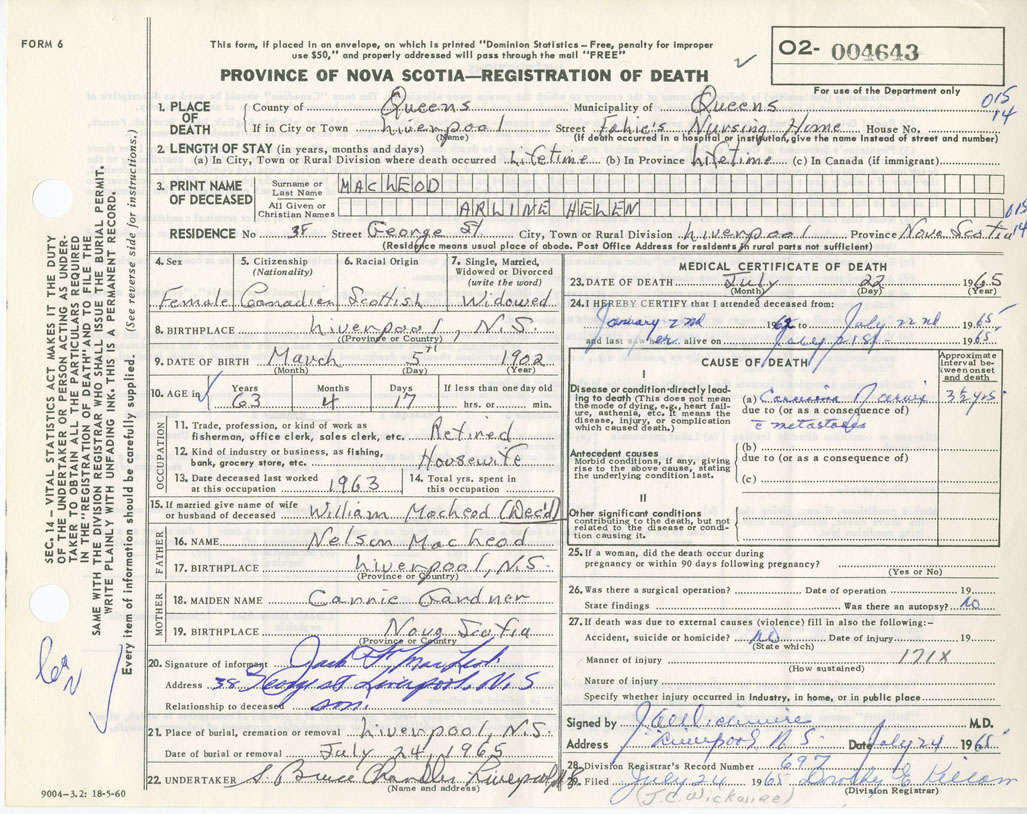 FORM 6
This form, if placed in an envelope, on which is printed "Dominion Statistics—Free, penalty for improper
use $50," and properly addressed will pass through the mail "FREE"
02- 004643
PROVINCE OF NOVA SCOTIA—REGISTRATION OF DEATH
For use of the Department only
015
14
1. PLACE OF DEATH
County of Queens Municipality of Queens
If in City or Town Liverpool Street Fahie's Nursing Home House No.
(Name) (If death occurred in a hospital or institution, give the name instead of street and number)
2. LENGTH OF STAY (in years, months and days)
(a) In City, Town or Rural Division where death occurred Lifetime (b) In Province Lifetime (c) In Canada (if immigrant)
3. PRINT NAME OF DECEASED
Surname or Last Name MACLEOD
All Given or Christian Names ARLINE HELEN
015
14
RESIDENCE No 38 Street George St City, Town or Rural Division Liverpool Province Nova Scotia
(Residence means usual place of abode. Post Office Address for residents in rural parts not sufficient)
4. Sex Female
5. Citizenship (Nationality) Canadian
6. Racial Origin Scottish
7. Single, Married, Widowed or Divorced (write the word) Widowed
8. BIRTHPLACE Liverpool, N.S.
(Province or Country)
9. DATE OF BIRTH March 5th 1902
(Month) (Day) (Year)
10. AGE in Years 63 Months 4 Days 17 If less than one day old hrs. or min.
OCCUPATION
11. Trade, profession, or kind of work as
fisherman, office clerk, sales clerk, etc. Retired
12. Kind of industry or business, as fishing,
bank, grocery store, etc. Housewife
13. Date deceased last worked at this occupation 1963
14. Total yrs. spent in this occupation
15. If married give name of wife
or husband of deceased William Macleod (Dec'd)
FATHER
16. NAME Nelson Macleod
17. BIRTHPLACE Liverpool, N.S.
(Province or Country)
MOTHER
18. MAIDEN NAME Cannie Gardner
19. BIRTHPLACE Nova Scotia
(Province or Country
20. Signature of informant Jack F. MacLeod
Address 38 George St Liverpool, N.S
Relationship to deceased son.
21. Place of burial, cremation or removal Liverpool, N.S.
Date of burial or removal July 24, 1965
22. UNDERTAKER S. Bruce Chandler Liverpool N.S
(Name and address)
9004-3.2: 18-5-60
MEDICAL CERTIFICATE OF DEATH
23. DATE OF DEATH July 22 1965
(Month) (Day) (Year)
24. I HEREBY CERTIFY that I attended deceased from:
January 2nd 1962 to July 22nd 1965
and last saw her alive on July 21st 1965
CAUSE OF DEATH
Approximate interval between onset and death
I
Disease or condition directly leading to death (This does not mean the mode of dying, e.g., heart failure, asthenia, etc. It means the disease, injury, or complication which caused death.)
(a) Carcinoma Cervix 3½ yrs
due to (or as a consequence of)
c̄ metastases
Antecedent causes
Morbid conditions, if any, giving rise to the above cause, stating the underlying condition last.
(b)
due to (or as a consequence of)
(c)
II
Other significant conditions
contributing to the death, but not related to the disease or condition causing it.
25. If a woman, did the death occur during
pregnancy or within 90 days following pregnancy?
(Yes or No)
26. Was there a surgical operation? Date of operation 19
State findings Was there an autopsy? No
27. If death was due to external causes (violence) fill in also the following:—
Accident, suicide or homicide? No Date of injury 19
(State which)
Manner of injury 171X
(How sustained)
Nature of injury
Specify whether injury occurred in industry, in home, or in public place
Signed by J C Wickwire M.D.
Address Liverpool N.S. Date July 24 1965
28. Division Registrar's Record Number 697
29. Filed July 24 1965 Dorothy E Killam
(J.C. Wickwire) (Division Registrar)
SEC. 14—VITAL STATISTICS ACT MAKES IT THE DUTY
OF THE UNDERTAKER OR PERSON ACTING AS UNDER-
TAKER TO OBTAIN ALL THE PARTICULARS REQUIRED
IN THE "REGISTRATION OF DEATH" AND TO FILE THE
SAME WITH THE DIVISION REGISTRAR WHO SHALL ISSUE THE BURIAL PERMIT.
WRITE PLAINLY WITH UNFADING INK. THIS IS A PERMANENT RECORD.
Every item of information should be carefully supplied. (See reverse side for instructions.)